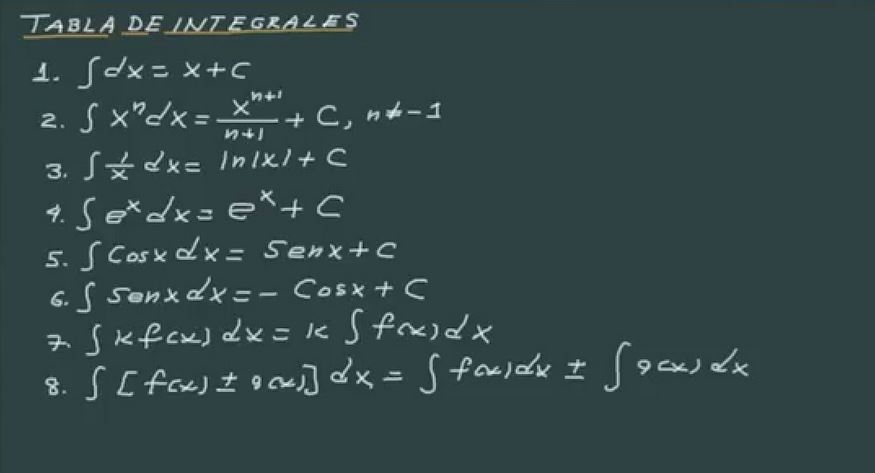 TABLA DE INTEGRALES
1. ∫dx = x+C
2. ∫x^n dx = x^(n+1)/(n+1) + C, n≠-1
3. ∫1/x dx = ln|x| + C
4. ∫e^x dx = e^x + C
5. ∫Cosx dx = Senx + C
6. ∫Senx dx = - Cosx + C
7. ∫kf(x) dx = k ∫f(x)dx
8. ∫[f(x) ± g(x)] dx = ∫f(x)dx ± ∫g(x) dx